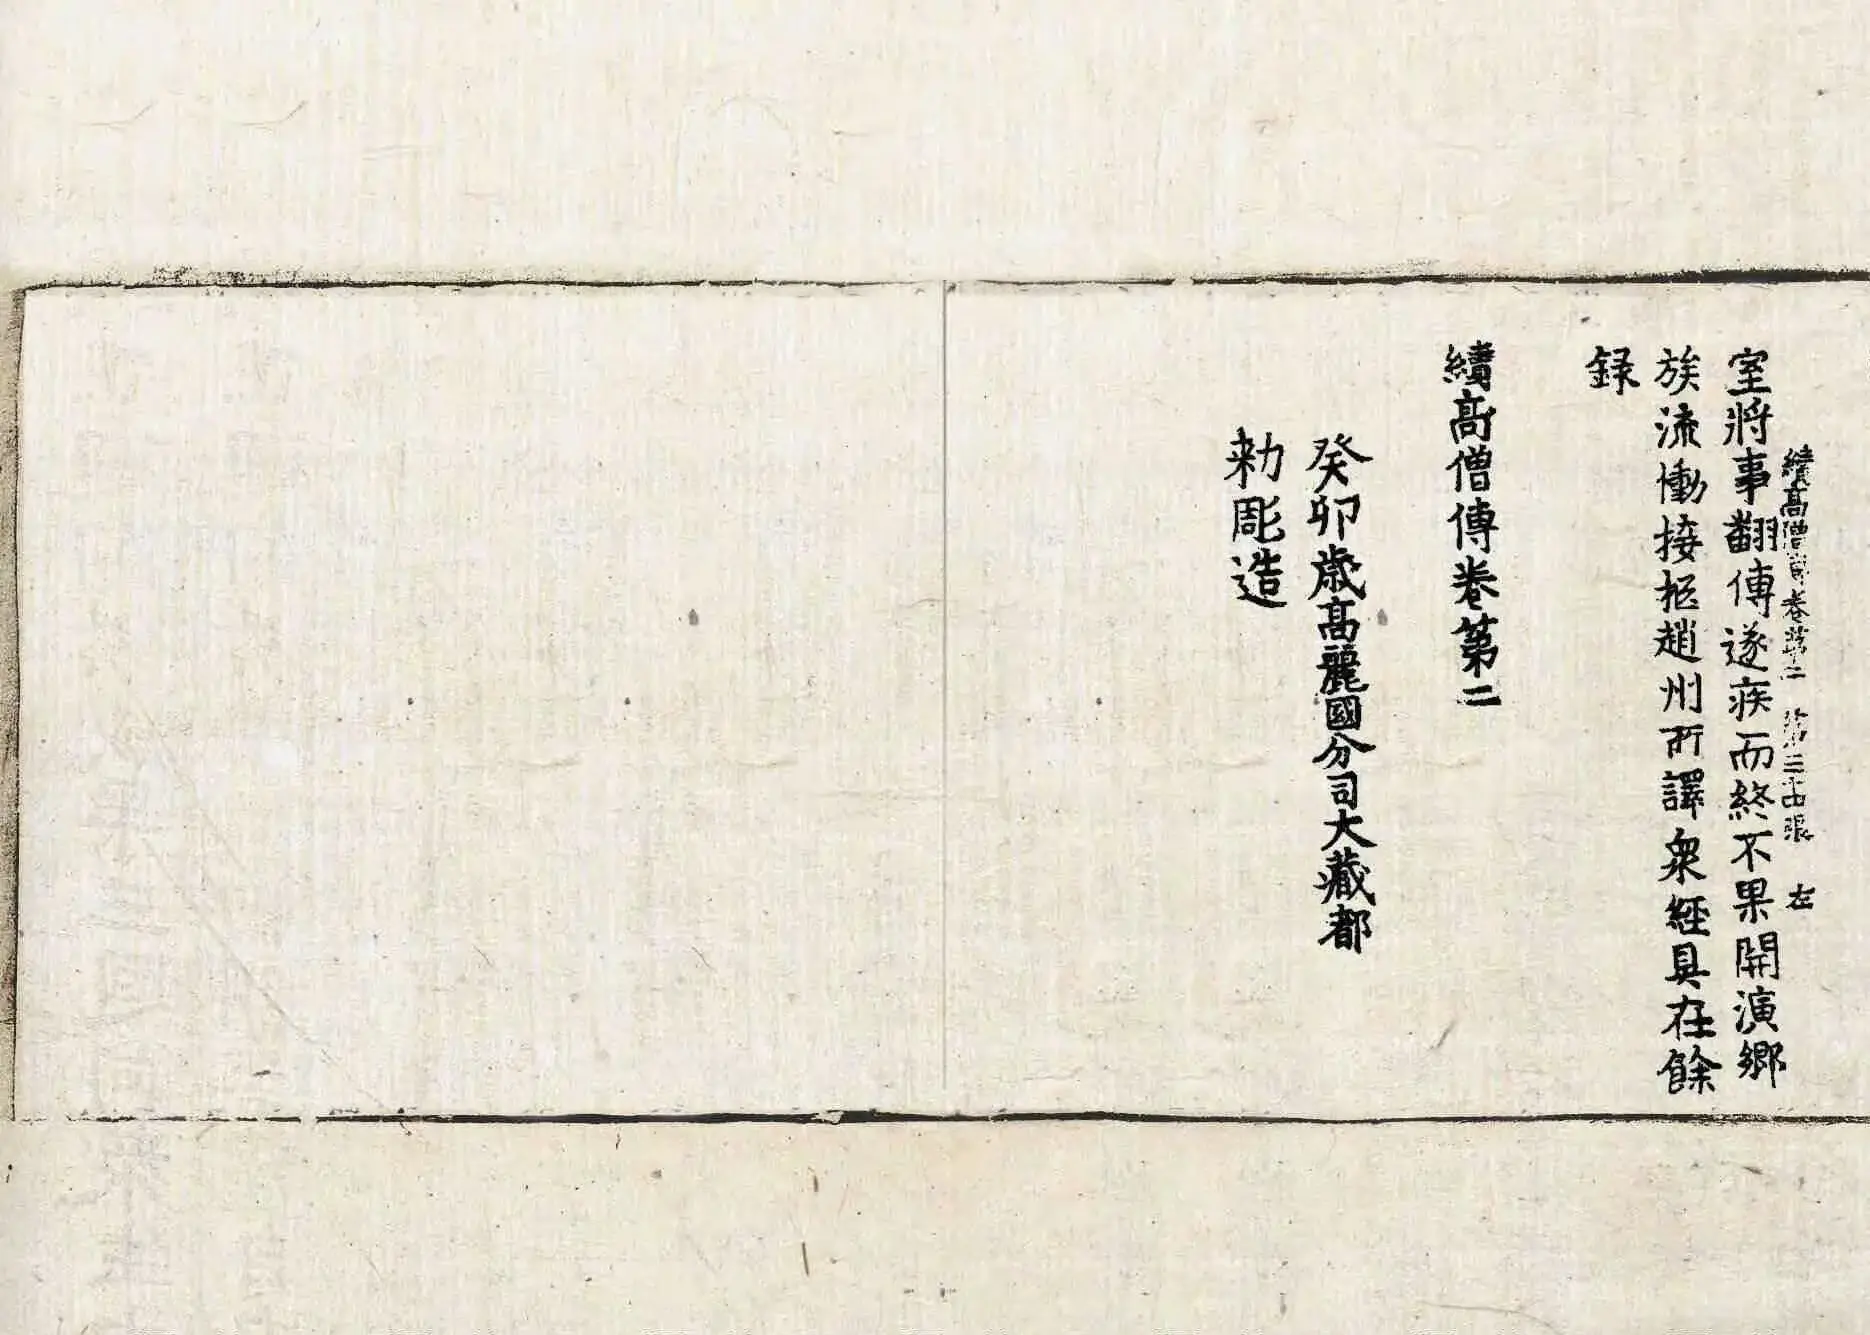 續高僧傳卷第二 第三十四張 左
室將事翻傳遂疾而終不果開演鄉
族流慟接扺趙州所譯衆經具在餘
録
續高僧傳卷第二
癸卯歳高麗國分司大藏都
勑彫造